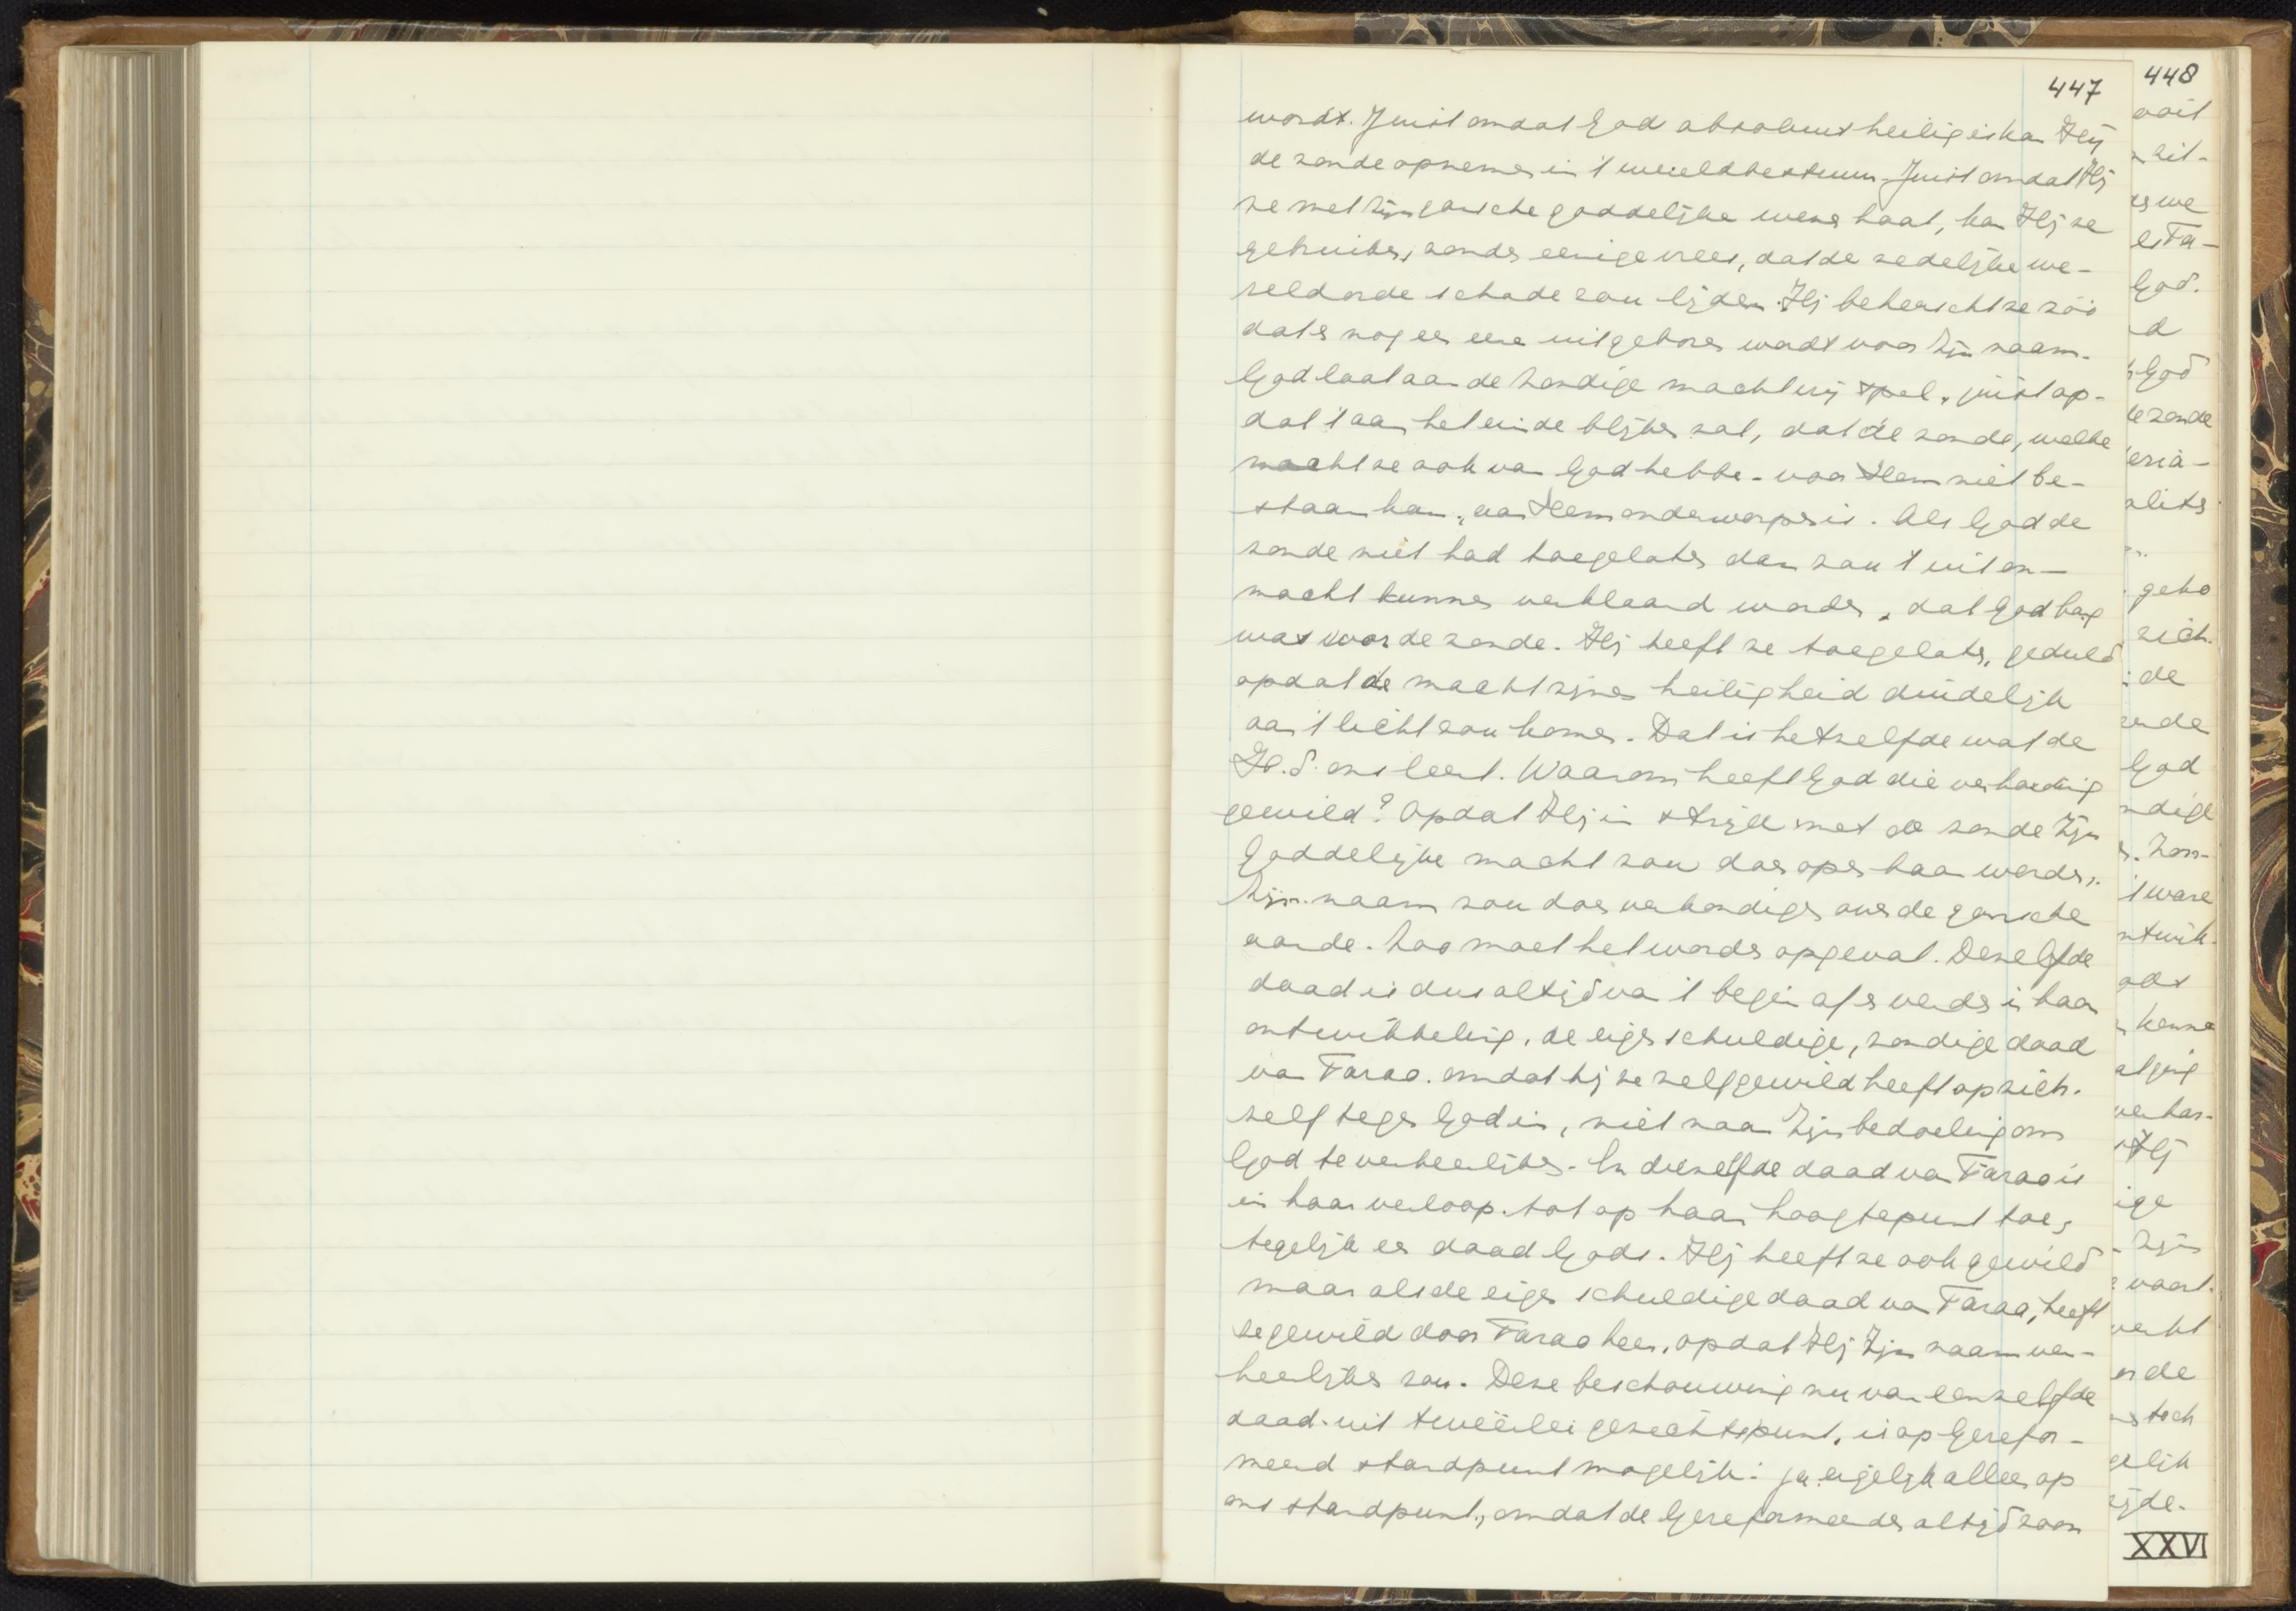 447
wordt. Juist omdat God absoluut heilig is kan Hij
de zonde opnemen in 't wereldbestuur. Juist omdat Hij
ze met Zijn gansche goddelijke wezen haat, kan Hij ze
gebruiken, zonder eenige vrees, dat de zedelijke we-
reldorde schade zou lijden. Hij beheerscht ze zóó
dat er nog een eere uit geboren wordt voor Zijn naam.
God laat aan de zondige macht vrij spel, juist op-
dat 't aan het einde blijken zal, dat de zonde, welke
macht ze ook van God hebbe - voor Hem niet be-
staan kan, aan Hem onderworpen is. Als God de
zonde niet had toegelaten dan zou 't uit on-
macht kunnen verklaard worden, dat God bang
was voor de zonde. Hij heeft ze toegelaten, geduld
opdat de macht zijner heiligheid duidelijk
aan 't licht zou komen. Dat is hetzelfde wat de
H.S. ons leert. Waarom heeft God die verharding
gewild? Opdat Hij in strijd met de zonde Zijn
Goddelijke macht zou doen openbaar worden,
Zijn naam zou doen verkondigen over de gansche
aarde. Zoo moet het worden opgevat. Dezelfde
daad is dus altijd van 't begin af en verder in haar
ontwikkeling, de eigen schuldige, zondige daad
van Farao. omdat hij ze zelf gewild heeft op zich-
zelf tegen God in, niet naar Zijn bedoeling om
God te verheerlijken. En diezelfde daad van Farao is
in haar verloop tot op haar hoogtepunt toe,
tegelijk een daad Gods. Hij heeft ze ook gewild
maar als de eigen schuldige daad van Farao, heeft
ze gewild door Farao heen, opdat Hij Zijn naam ver-
heerlijken zou. Deze beschouwing nu van eenzelfde
daad uit tweeërlei gezichtspunt, is op Gerefor-
meerd standpunt mogelijk: ja eigelijk alleen op
ons standpunt, omdat de Gereformeerden altijd zoo'n
448
ooit
zit-
we
Fa-
God.
d
God
de zonde
geko
zich
de
God
ndige
Zon-
't ware
ntwik-
kenne
ver har-
Hij
ige
Zijn
vaart.
de
toch
gelijk
zijde.
XXVI